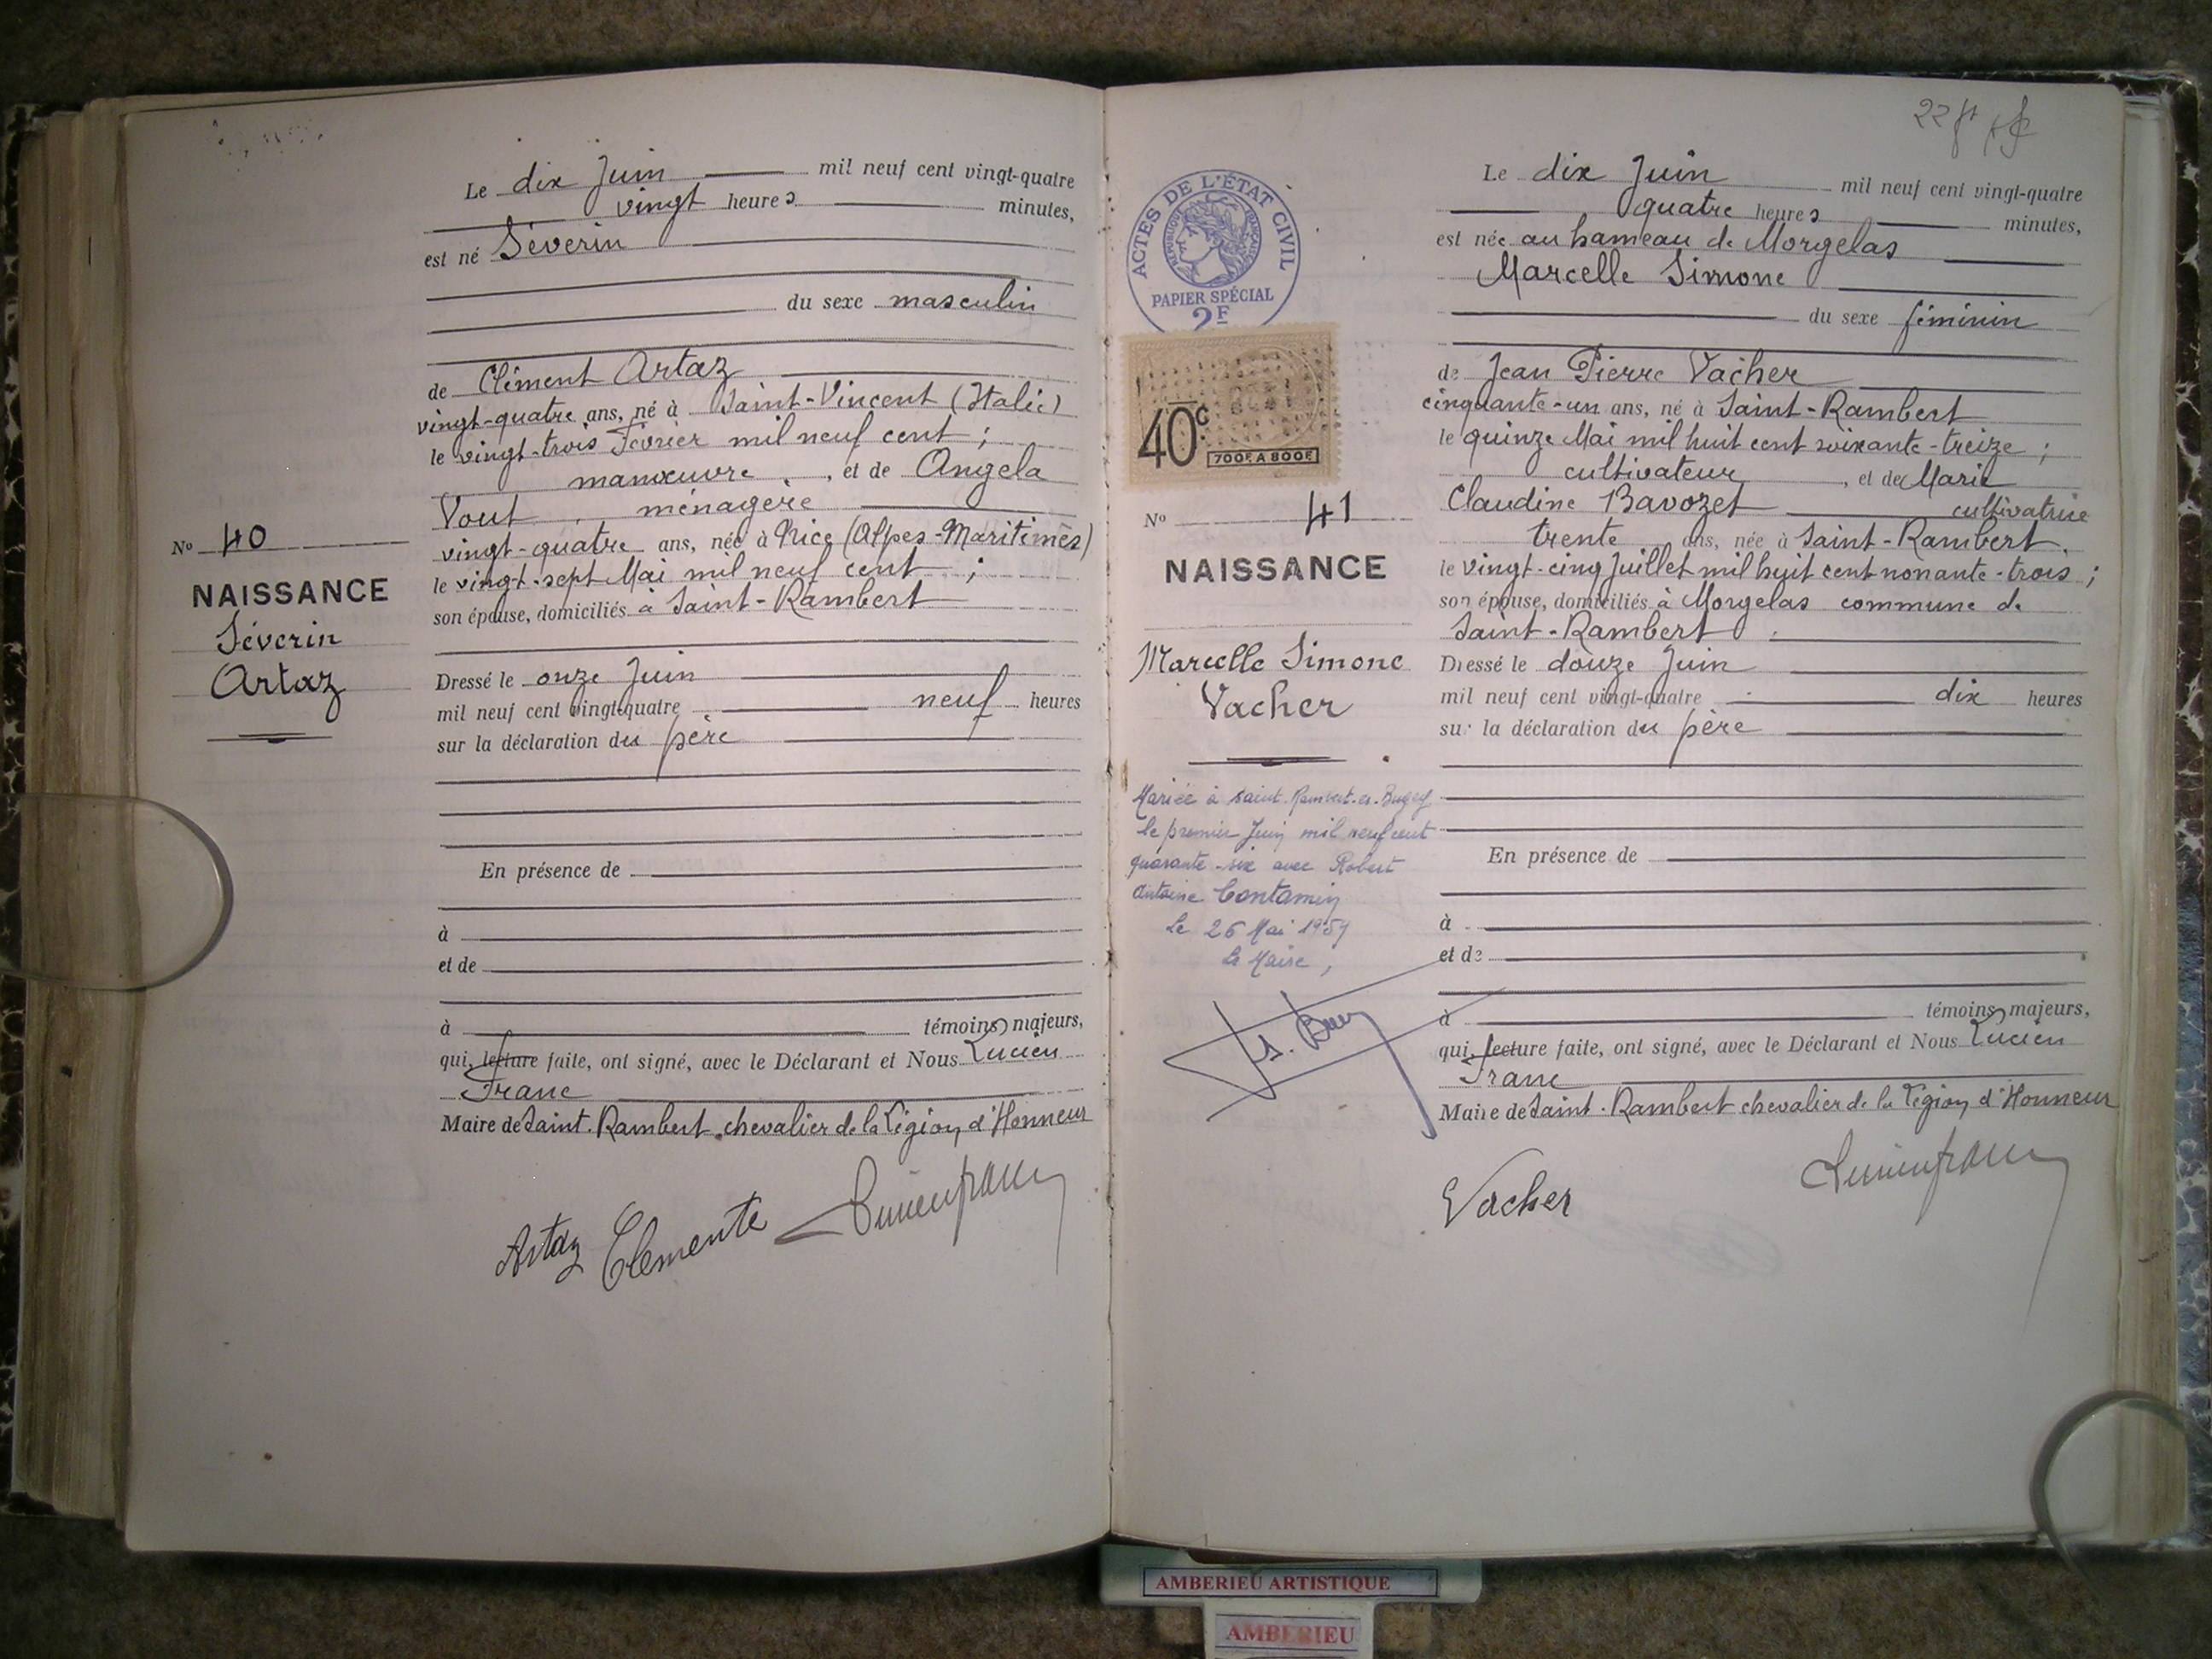 Le dix Juin mil neuf cent vingt-quatre
vingt heures minutes,
est né Séverin
du sexe masculin
de Clément Artaz
vingt-quatre ans, né à Saint-Vincent (Italie)
le vingt-trois Février mil neuf cent ;
manœuvre , et de Angela
Vout, ménagère
vingt-quatre ans, née à Nice (Alpes-Maritimes)
le vingt-sept Mai mil neuf cent ;
son épouse, domiciliés à Saint-Rambert
Dressé le onze Juin
mil neuf cent vingt-quatre neuf heures
sur la déclaration du père
En présence de
à
et de
à témoins majeurs,
qui, lecture faite, ont signé, avec le Déclarant et Nous Lucien
Franc
Maire de Saint-Rambert, chevalier de la Légion d'Honneur
Artaz Clemente Lucien franc
No 40
NAISSANCE
Séverin
Artaz
ACTES DE L'ÉTAT CIVIL
RÉPUBLIQUE FRANÇAISE
PAPIER SPÉCIAL
2F
40c
700F A 800F
No 41
NAISSANCE
Marcelle Simone
Vacher
Mariée à Saint-Rambert-en-Bugey
le premier Juin mil neuf cent
quarante-six avec Robert
Antoine Contamin
Le 26 Mai
Le Maire,
22
Le dix Juin mil neuf cent vingt-quatre
quatre heures minutes,
est née au hameau de Morgelas
Marcelle Simone
du sexe féminin
de Jean Pierre Vacher
cinquante-un ans, né à Saint-Rambert
le quinze Mai mil huit cent soixante-treize ;
cultivateur , et de Marie
Claudine Bavozet cultivatrice
trente ans, née à Saint-Rambert,
le vingt-cinq Juillet mil huit cent nonante-trois ;
son épouse, domiciliés à Morgelas commune de
Saint-Rambert
Dressé le douze Juin
mil neuf cent vingt-quatre dix heures
sur la déclaration du père
En présence de
à
et de
à témoins majeurs,
qui, lecture faite, ont signé, avec le Déclarant et Nous Lucien
Franc
Maire de Saint-Rambert chevalier de la Légion d'Honneur
Vacher Lucien franc
AMBERIEU ARTISTIQUE
AMBERIEU